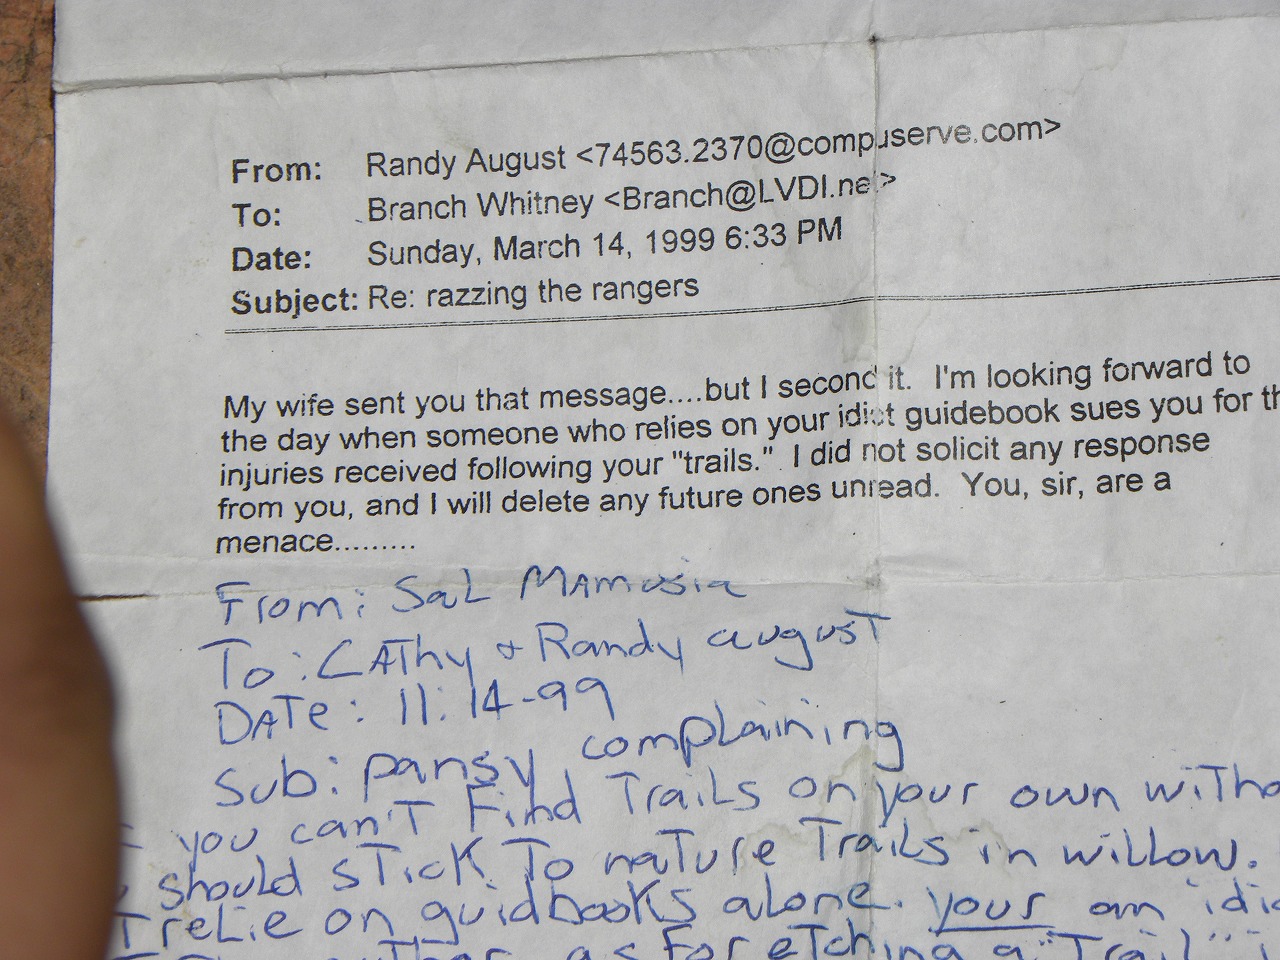 From: Randy August <74563.2370@compuserve.com>
To: Branch Whitney <Branch@LVDI.net>
Date: Sunday, March 14, 1999 6:33 PM
Subject: Re: razzing the rangers
My wife sent you that message....but I second it. I'm looking forward to
the day when someone who relies on your idiot guidebook sues you for th
injuries received following your "trails." I did not solicit any response
from you, and I will delete any future ones unread. You, sir, are a
menace.........
From: Sal Mamusia
To: CAThy & Randy august
DATe: 11:14-99
Sub: pansy complaining
you can't Find Trails on your own witho
should stick To nature Trails in willow.
reLie on guidbooks alone. your an idio
as For etching a "Trail" i